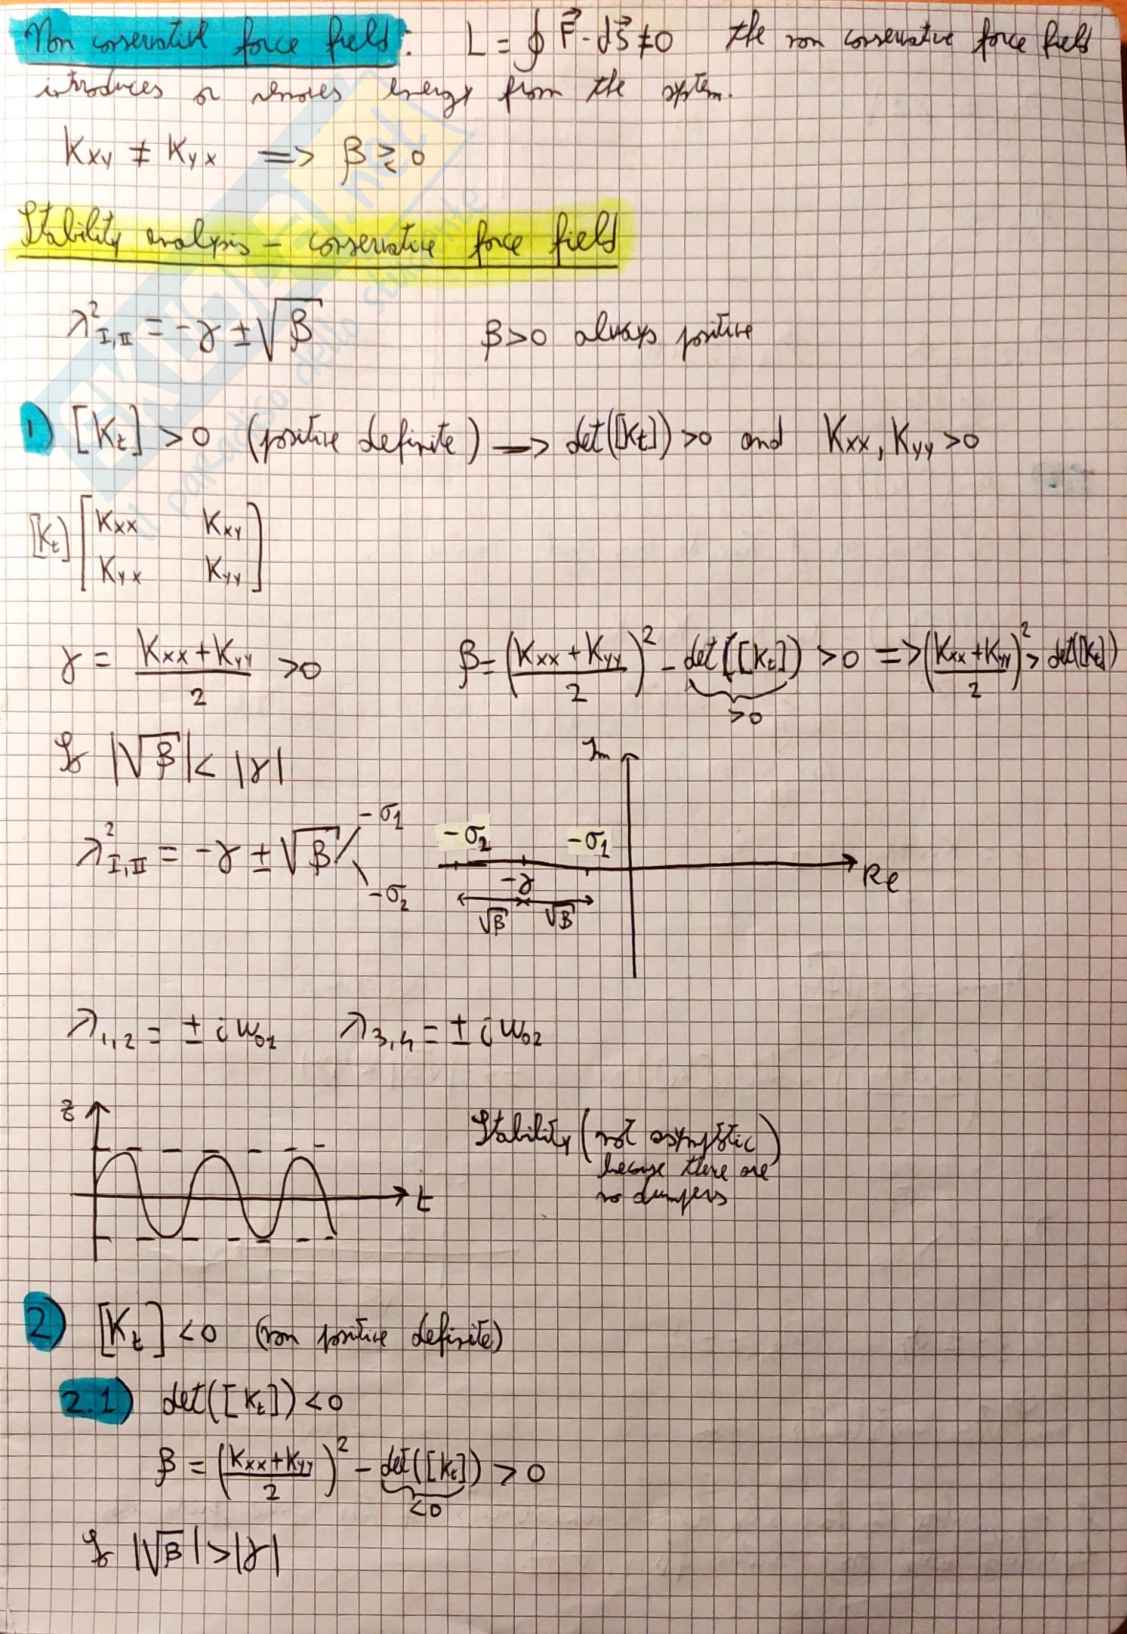 Non conservative force field: L = ∮ F⃗ · ds⃗ ≠ 0 the non conservative force field
introduces or removes energy from the system.
Kxy ≠ Kyx => β ≷ 0
Stability analysis - conservative force field
λ²_I,II = -γ ± √β β>0 always positive
1) [Kt] > 0 (positive definite) → det([Kt]) > 0 and Kxx, Kyy > 0
[Kt] [Kxx Kxy
Kyx Kyy]
γ = (Kxx + Kyy)/2 > 0 β = ((Kxx + Kyy)/2)² - det([Kt]) > 0 => ((Kxx + Kyy)/2)² > det([Kt])
>0
If |√β| < |γ|
Im
λ²_I,II = -γ ± √β -σ1 -σ2
-σ2 -σ1 Re
-γ
√β √β
λ1,2 = ± i ω01 λ3,4 = ± i ω02
z
t
Stability (not asymptotic
because there are
no dampers)
2) [Kt] < 0 (non positive definite)
2.1) det([Kt]) < 0
β = ((Kxx + Kyy)/2)² - det([Kt]) > 0
<0
If |√β| > |γ|